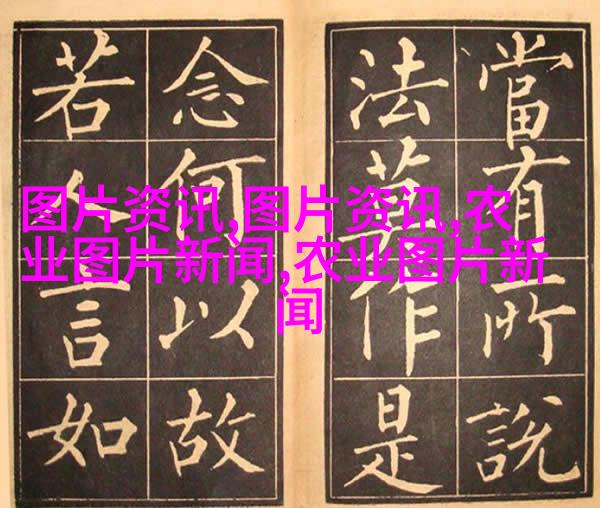 當有所說
法莫作是
念何以故
若人言如
图片资讯,图片资讯,农
业图片新闻,农业图片新
闻